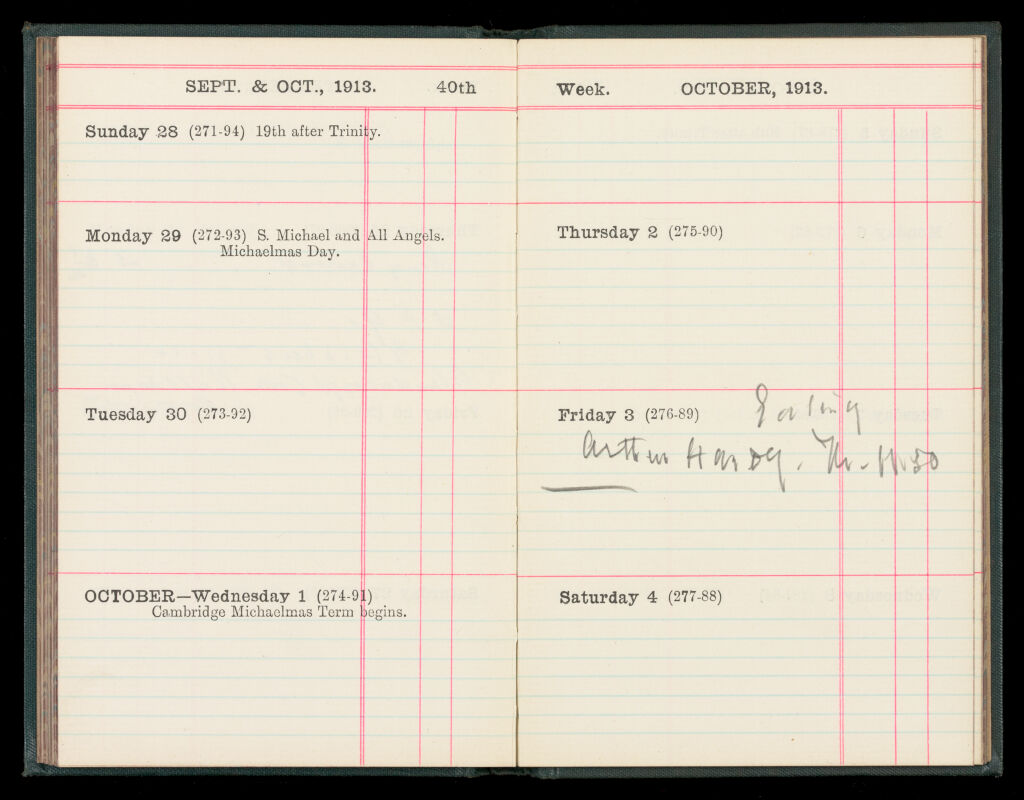 SEPT. & OCT., 1913. 40th
Sunday 28 (271-94) 19th after Trinity.
Monday 29 (272-93) S. Michael and All Angels.
Michaelmas Day.
Tuesday 30 (273-92)
OCTOBER—Wednesday 1 (274-91)
Cambridge Michaelmas Term begins.
Week. OCTOBER, 1913.
Thursday 2 (275-90)
Friday 3 (276-89) Ealing
Arthur Hardy.
Saturday 4 (277-88)